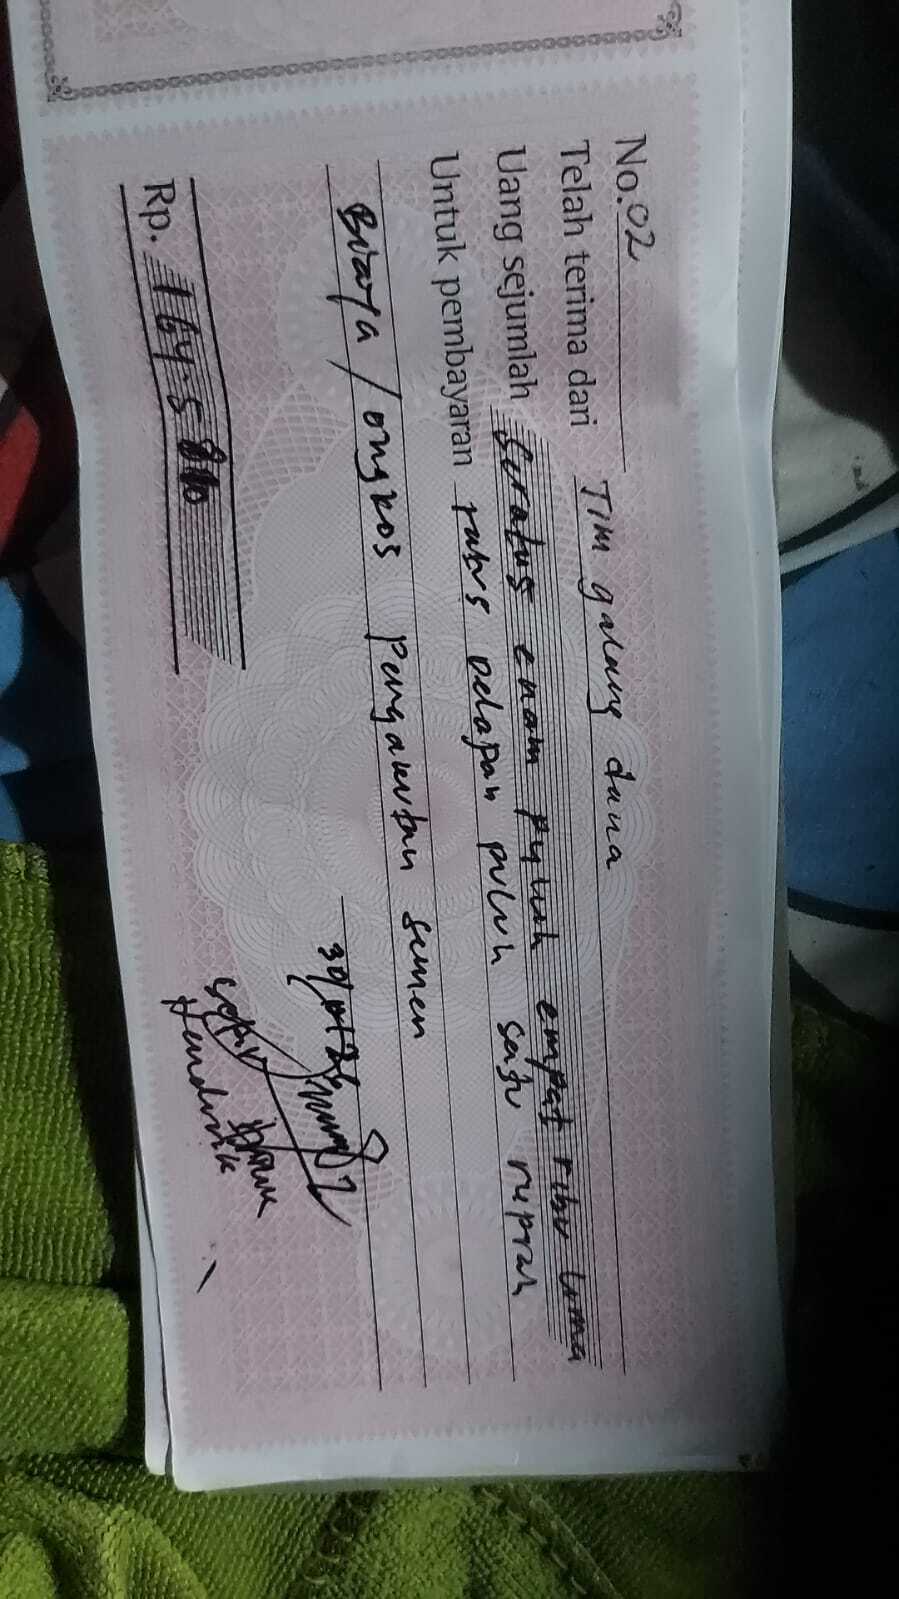 No. 02
Telah terima dari Tim galang dana
Uang sejumlah Seratus enam puluh empat ribu lima
ratus delapan puluh satu rupiah
Untuk pembayaran
Biaya / ongkos Pengakutan semen
Rp. 164.5
Sopir
Hendrik